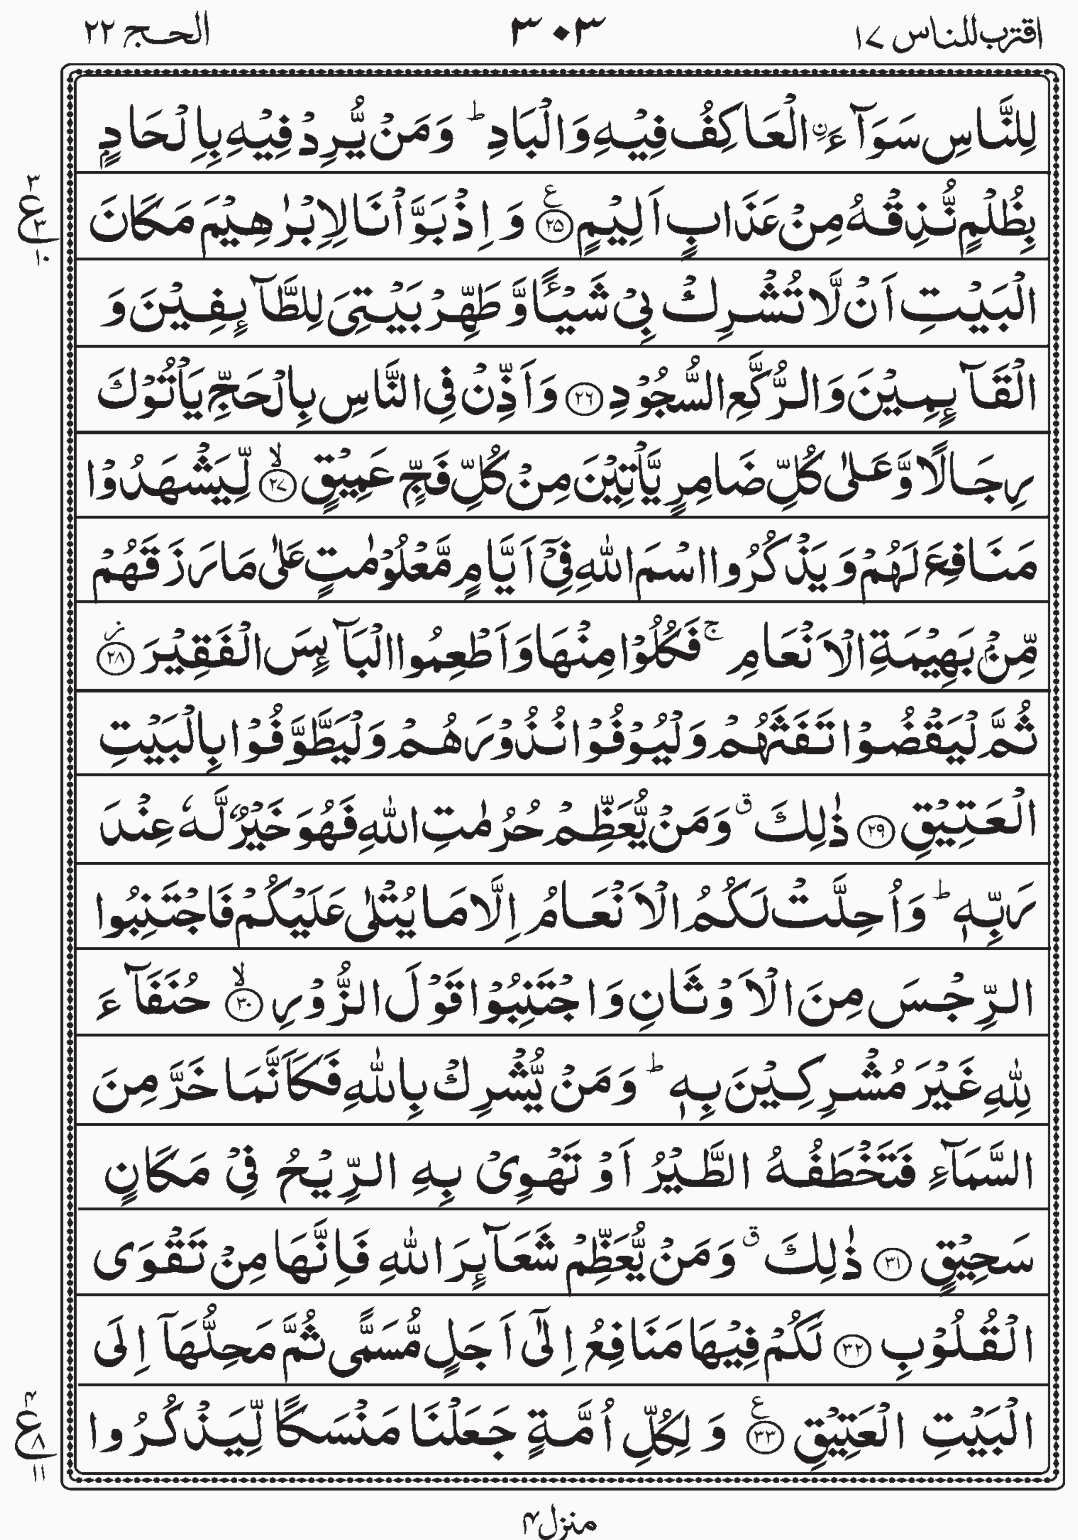 اقترب للناس ١٧ ٣٠٣ الحج ٢٢
لِلنَّاسِ سَوَآءَ ࣙالْعَاكِفُ فِيْهِ وَالْبَادِ ؕ وَمَنْ يُّرِدْ فِيْهِ بِاِلْحَادٍۭ
بِظُلْمٍ نُّذِقْهُ مِنْ عَذَابٍ اَلِيْمٍ ﴿٢٥﴾ ع وَ اِذْ بَوَّاْنَا لِاِبْرٰهِيْمَ مَكَانَ
الْبَيْتِ اَنْ لَّا تُشْرِكْ بِيْ شَيْـًٔا وَّ طَهِّرْ بَيْتِيَ لِلطَّآئِفِيْنَ وَ
الْقَآئِمِيْنَ وَالرُّكَّعِ السُّجُوْدِ ﴿٢٦﴾ وَ اَذِّنْ فِي النَّاسِ بِالْحَجِّ يَاْتُوْكَ
رِجَالًا وَّ عَلٰى كُلِّ ضَامِرٍ يَّاْتِيْنَ مِنْ كُلِّ فَجٍّ عَمِيْقٍ ﴿٢٧﴾ ۙ لِّيَشْهَدُوْا
مَنَافِعَ لَهُمْ وَ يَذْكُرُوا اسْمَ اللّٰهِ فِيْۤ اَيَّامٍ مَّعْلُوْمٰتٍ عَلٰى مَا رَزَقَهُمْ
مِّنْۢ بَهِيْمَةِ الْاَنْعَامِ ۚ فَكُلُوْا مِنْهَا وَ اَطْعِمُوا الْبَآئِسَ الْفَقِيْرَ ﴿٢٨﴾ ز
ثُمَّ لْيَقْضُوْا تَفَثَهُمْ وَلْيُوْفُوْا نُذُوْرَهُمْ وَلْيَطَّوَّفُوْا بِالْبَيْتِ
الْعَتِيْقِ ﴿٢٩﴾ ذٰلِكَ ق وَمَنْ يُّعَظِّمْ حُرُمٰتِ اللّٰهِ فَهُوَ خَيْرٌ لَّهٗ عِنْدَ
رَبِّهٖ ؕ وَ اُحِلَّتْ لَكُمُ الْاَنْعَامُ اِلَّا مَا يُتْلٰى عَلَيْكُمْ فَاجْتَنِبُوا
الرِّجْسَ مِنَ الْاَوْثَانِ وَ اجْتَنِبُوْا قَوْلَ الزُّوْرِ ﴿٣٠﴾ ۙ حُنَفَآءَ
لِلّٰهِ غَيْرَ مُشْرِكِيْنَ بِهٖ ؕ وَمَنْ يُّشْرِكْ بِاللّٰهِ فَكَاَنَّمَا خَرَّ مِنَ
السَّمَآءِ فَتَخْطَفُهُ الطَّيْرُ اَوْ تَهْوِيْ بِهِ الرِّيْحُ فِيْ مَكَانٍ
سَحِيْقٍ ﴿٣١﴾ ذٰلِكَ ق وَمَنْ يُّعَظِّمْ شَعَآئِرَ اللّٰهِ فَاِنَّهَا مِنْ تَقْوَى
الْقُلُوْبِ ﴿٣٢﴾ لَكُمْ فِيْهَا مَنَافِعُ اِلٰۤى اَجَلٍ مُّسَمًّى ثُمَّ مَحِلُّهَاۤ اِلَى
الْبَيْتِ الْعَتِيْقِ ﴿٣٣﴾ ع وَ لِكُلِّ اُمَّةٍ جَعَلْنَا مَنْسَكًا لِّيَذْكُرُوا
٣
ع ٣
١٠
٤
ع ٨
١١
منزل ٤